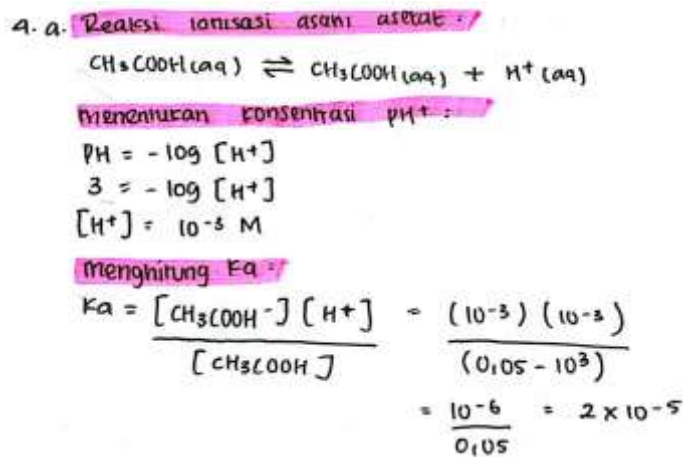 4. a. Reaksi ionisasi asam asetat :
CH₃COOH(aq) ⇌ CH₃COOH(aq) + H⁺(aq)
Menentukan konsentrasi pH⁺ :
PH = - log [H⁺]
3 = - log [H⁺]
[H⁺] = 10⁻³ M
Menghitung Ka :
Ka = [CH₃COOH⁻] [H⁺] / [CH₃COOH] = (10⁻³) (10⁻³) / (0,05 - 10³)
= 10⁻⁶ / 0,05 = 2 × 10⁻⁵